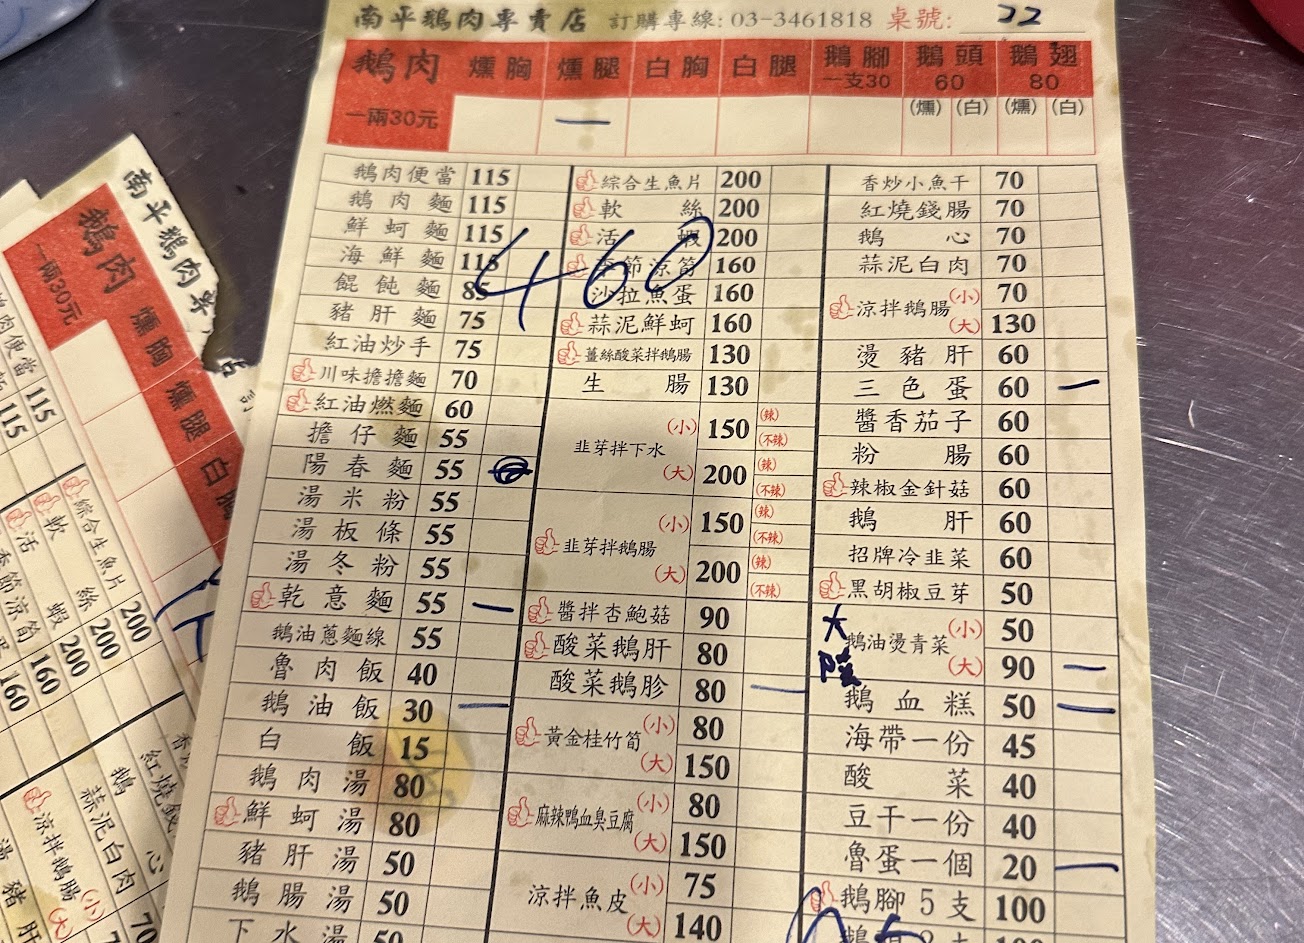 南平鵝肉專賣店 訂購專線: 03-3461818 桌號: 22
鵝肉 燻胸 燻腿 白胸 白腿 鵝腳 一支30 鵝頭 60 鵝翅 80
一兩30元 一 (燻) (白) (燻) (白)
鵝肉便當 115
鵝肉麵 115
鮮蚵麵 115
海鮮麵 115
餛飩麵 85
豬肝麵 75
紅油炒手 75
川味擔擔麵 70
紅油燃麵 60
擔仔麵 55
陽春麵 55
湯米粉 55
湯板條 55
湯冬粉 55
乾意麵 55 一
鵝油蔥麵線 55
魯肉飯 40
鵝油飯 30 一
白飯 15
鵝肉湯 80
鮮蚵湯 80
豬肝湯 50
鵝腸湯 50
下水湯 50
460
綜合生魚片 200
軟絲 200
活蝦 200
季節涼筍 160
沙拉魚蛋 160
蒜泥鮮蚵 160
薑絲酸菜拌鵝腸 130
生腸 130
韭芽拌下水 (小) 150 (辣) (不辣)
(大) 200 (辣) (不辣)
韭芽拌鵝腸 (小) 150 (辣) (不辣)
(大) 200 (辣) (不辣)
醬拌杏鮑菇 90
酸菜鵝肝 80
酸菜鵝胗 80 一
黃金桂竹筍 (小) 80
(大) 150
麻辣鴨血臭豆腐 (小) 80
(大) 150
涼拌魚皮 (小) 75
(大) 140
香炒小魚干 70
紅燒錢腸 70
鵝心 70
蒜泥白肉 70
涼拌鵝腸 (小) 70
(大) 130
燙豬肝 60
三色蛋 60 一
醬香茄子 60
粉腸 60
辣椒金針菇 60
鵝肝 60
招牌冷韭菜 60
黑胡椒豆芽 50
大陸
鵝油燙青菜 (小) 50
(大) 90 一
鵝血糕 50 一
海帶一份 45
酸菜 40
豆干一份 40
魯蛋一個 20 一
鵝腳5支 100
南平鵝肉專
鵝肉 燻胸 燻腿 白胸
一兩30元
肉便當 115
115
綜合生魚片 200
軟絲 200
活蝦 200
季節涼筍 160
160
紅燒錢
鵝心
蒜泥白肉 70
涼拌鵝腸 (小)
(大)
豬肝